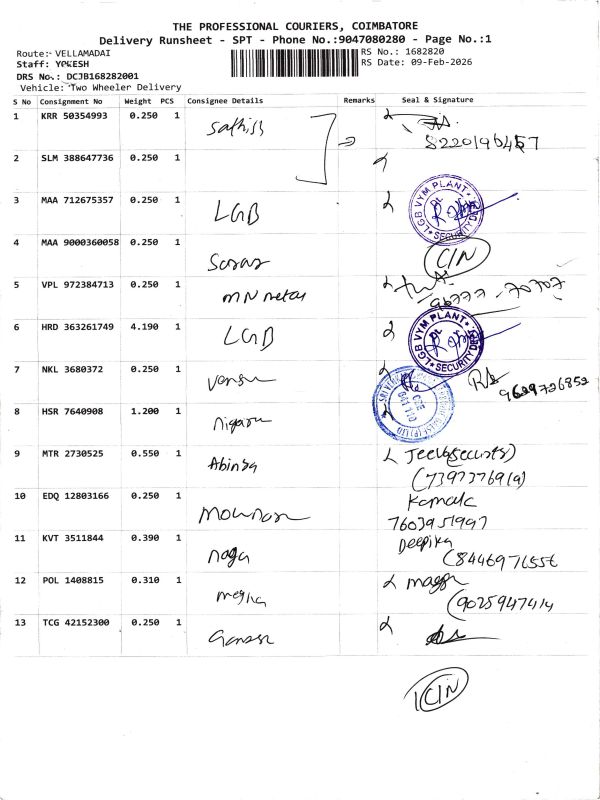 THE PROFESSIONAL COURIERS, COIMBATORE
Delivery Runsheet - SPT - Phone No.:9047080280 - Page No.:1
Route: VELLAMADAI
RS No.: 1682820
Staff: YOKESH
RS Date: 09-Feb-2026
DRS No.: DCJB168282001
Vehicle: Two Wheeler Delivery
S No Consignment No Weight PCS Consignee Details Remarks Seal & Signature
1 KRR 50354993 0.250 1 Sathish
2 SLM 388647736 0.250 1
3 MAA 712675357 0.250 1 LGB LGB VYM PLANT SECURITY DEPT
4 MAA 9000360058 0.250 1 CIN
5 VPL 972384713 0.250 1 MN metal 96777-70707
6 HRD 363261749 4.190 1 LGB LGB VYM PLANT SECURITY DEPT
7 NKL 3680372 0.250 1 9629726852
8 HSR 7640908 1.200 1
9 MTR 2730525 0.550 1 Abinaya Jeeva(security)
10 EDQ 12803166 0.250 1 Kamala
7603951997
11 KVT 3511844 0.390 1 naga Deepika
12 POL 1408815 0.310 1 megha
(9025947414
13 TCG 42152300 0.250 1 Ganesh
CIN